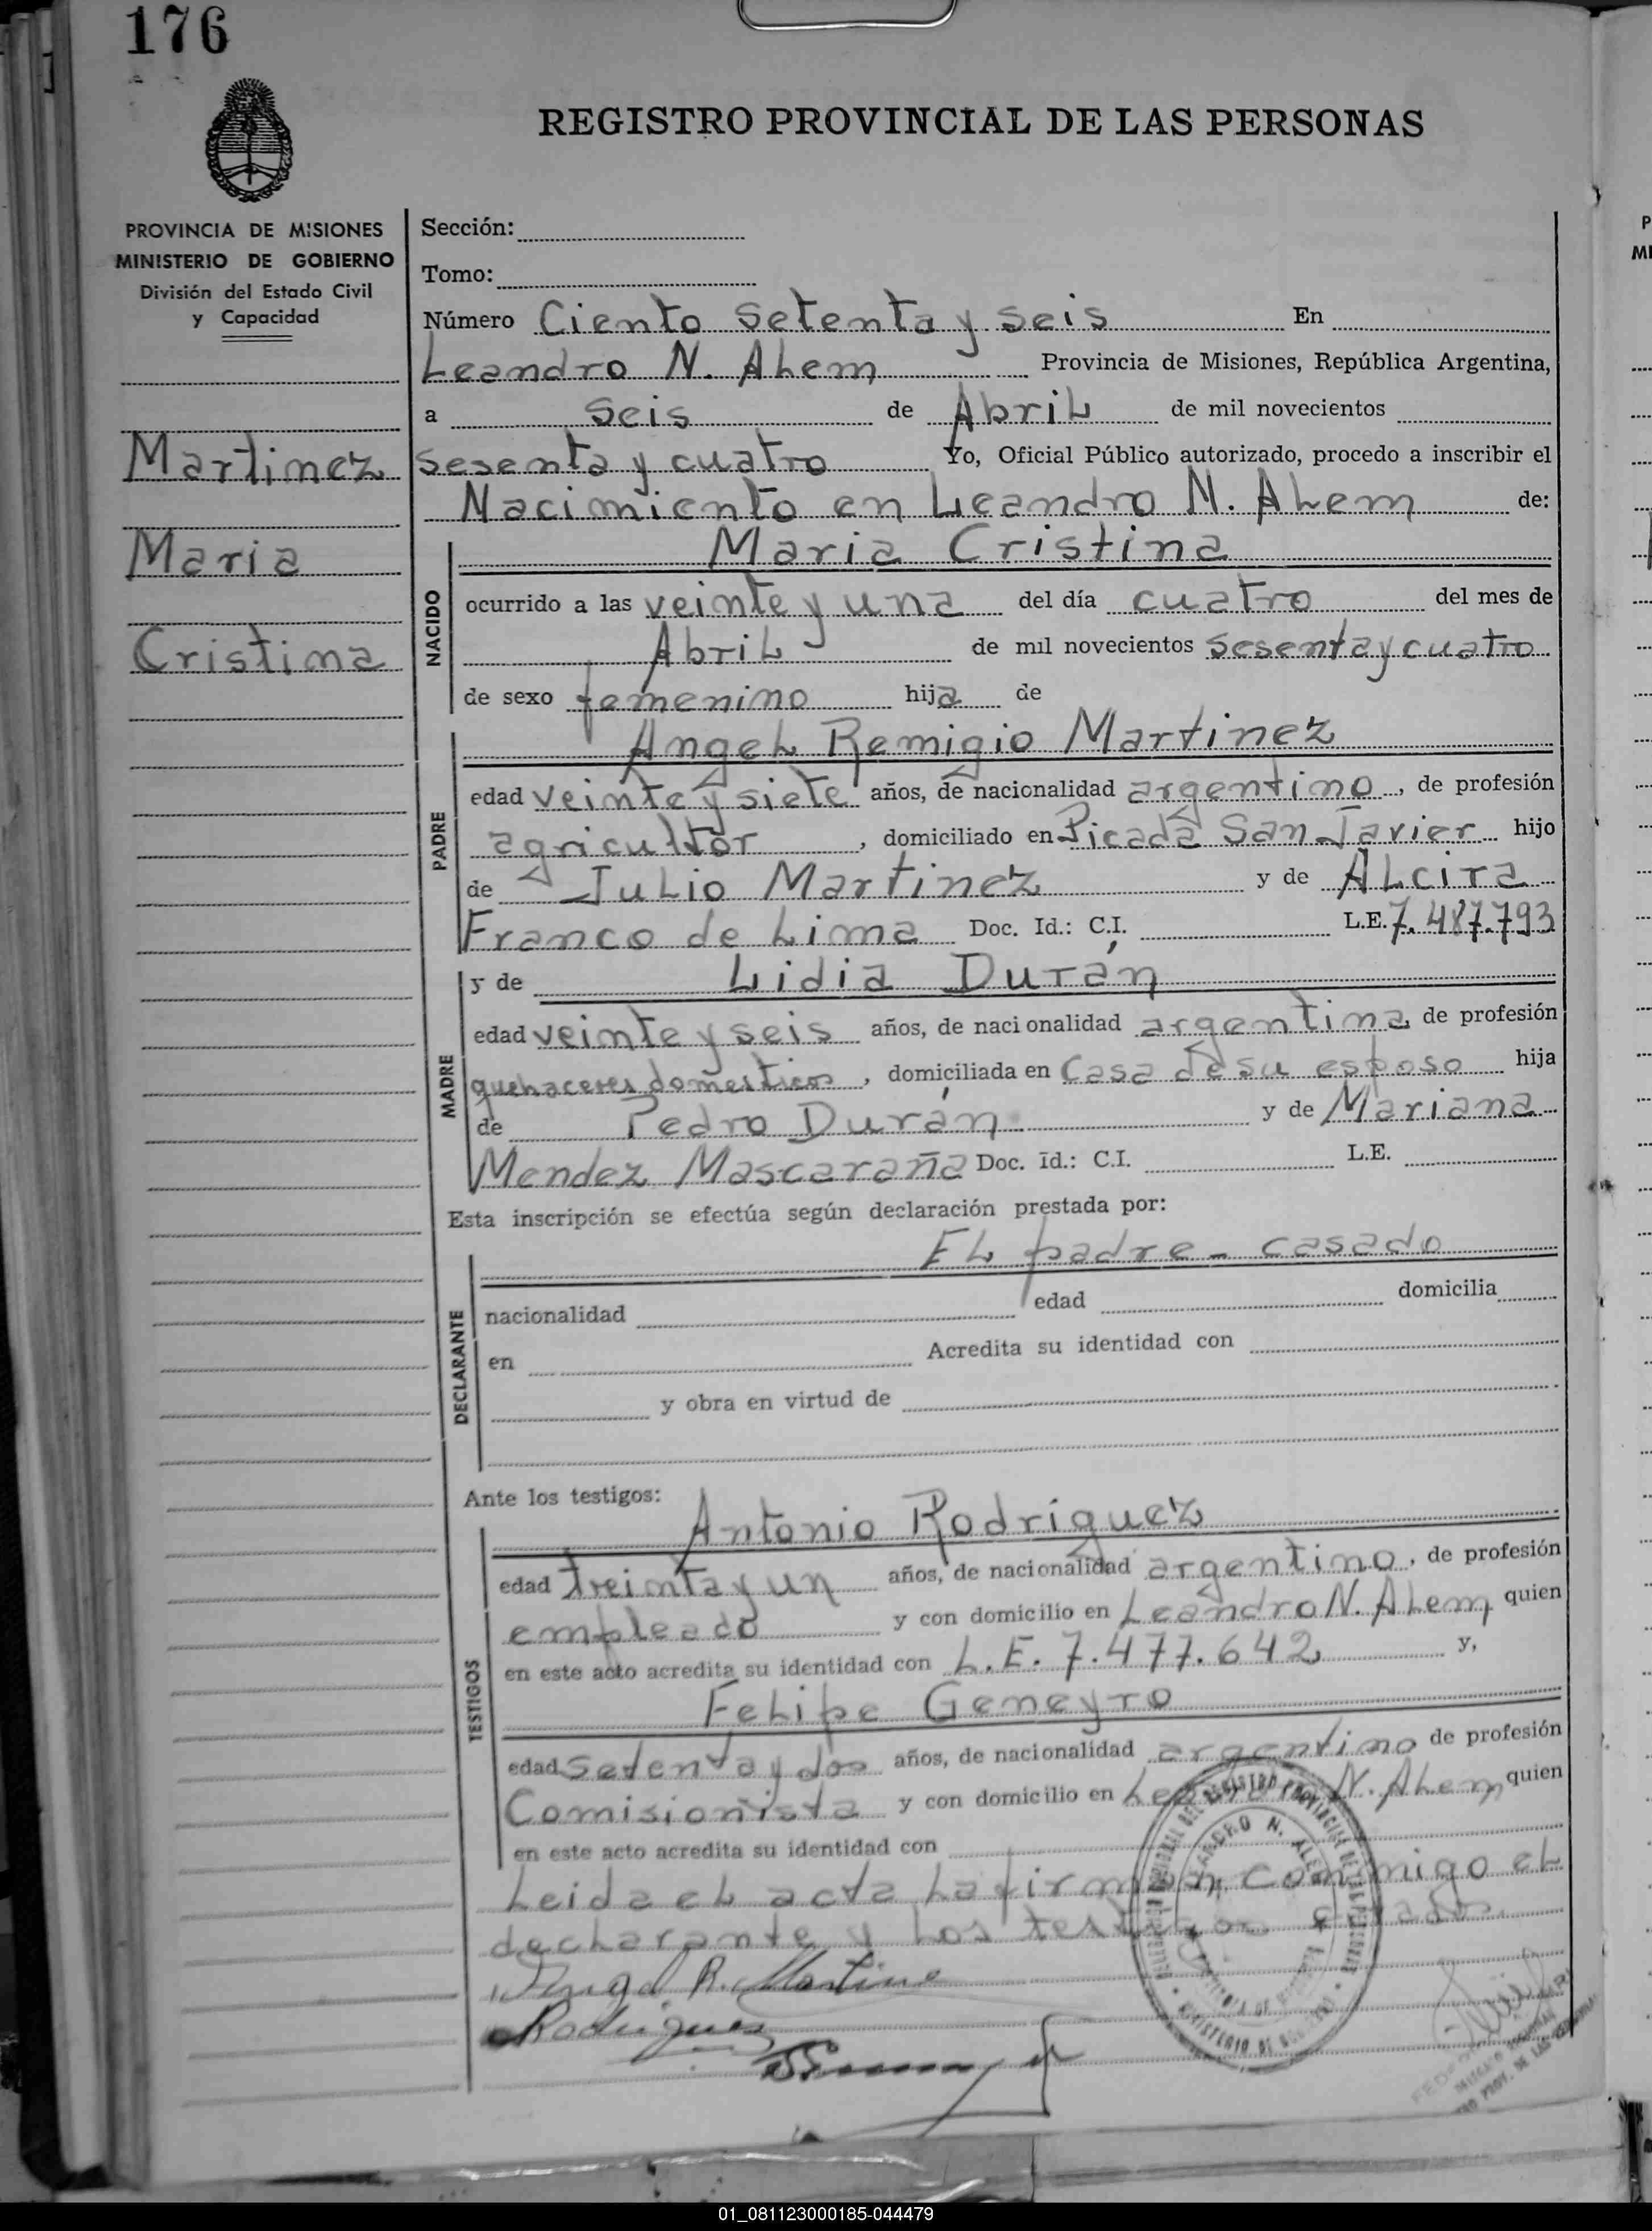 176
REGISTRO PROVINCIAL DE LAS PERSONAS
PROVINCIA DE MISIONES
MINISTERIO DE GOBIERNO
División del Estado Civil
y Capacidad
Martinez
Maria
Cristina
Sección:
Tomo:
Número Ciento Setenta y Seis En
Leandro N. Alem Provincia de Misiones, República Argentina,
a Seis de Abril de mil novecientos
sesenta y cuatro Yo, Oficial Público autorizado, procedo a inscribir el
Nacimiento en Leandro N. Alem de:
NACIDO
Maria Cristina
ocurrido a las veinte y una del día cuatro del mes de
Abril de mil novecientos sesenta y cuatro
de sexo femenino hija de
PADRE
Angel Remigio Martinez
edad veinte y siete años, de nacionalidad argentino, de profesión
agricultor, domiciliado en Picada San Javier hijo
de Julio Martinez y de Alcira
Franco de Lima Doc. Id.: C.I. L.E. 7.487.793
MADRE
y de Lidia Durán
edad veinte y seis años, de nacionalidad argentina, de profesión
quehaceres domesticos, domiciliada en Casa de su esposo hija
de Pedro Durán y de Mariana
Mendez Mascaraña Doc. Id.: C.I. L.E.
Esta inscripción se efectúa según declaración prestada por:
DECLARANTE
El padre - casado
nacionalidad edad domicilia
en Acredita su identidad con
y obra en virtud de
Ante los testigos:
TESTIGOS
Antonio Rodriguez
edad treinta y un años, de nacionalidad argentino, de profesión
empleado y con domicilio en Leandro N. Alem quien
en este acto acredita su identidad con L.E. 7.477.642 y,
Felipe Geneyro
edad setenta y dos años, de nacionalidad argentino de profesión
Comisionista y con domicilio en Leandro N. Alem quien
en este acto acredita su identidad con
Leida el acta la firman conmigo el
declarante y los testigos citados.
Angel R. Martinez
Rodriguez
01_081123000185-044479